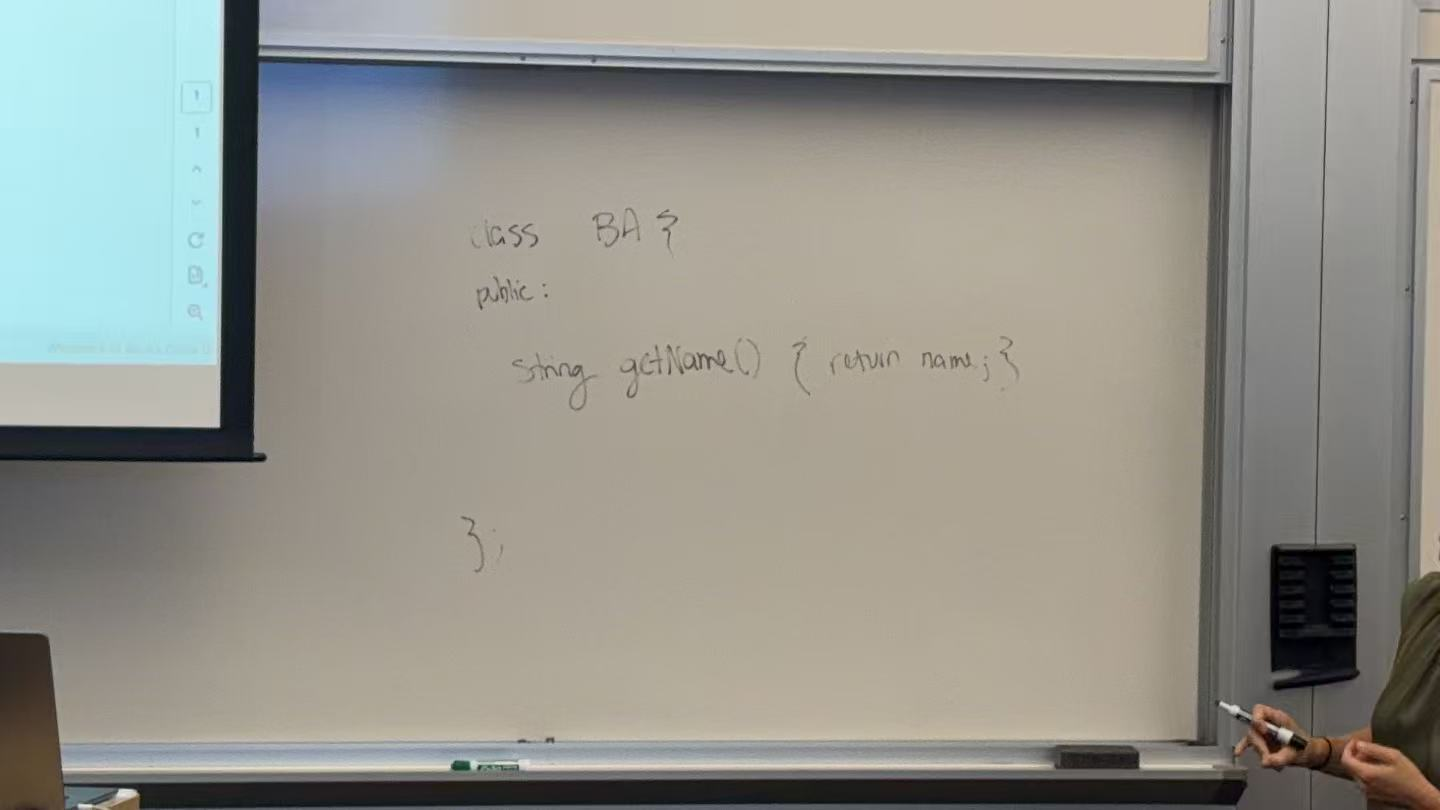 1
1
class BA {
public:
string getName() { return name; }
};